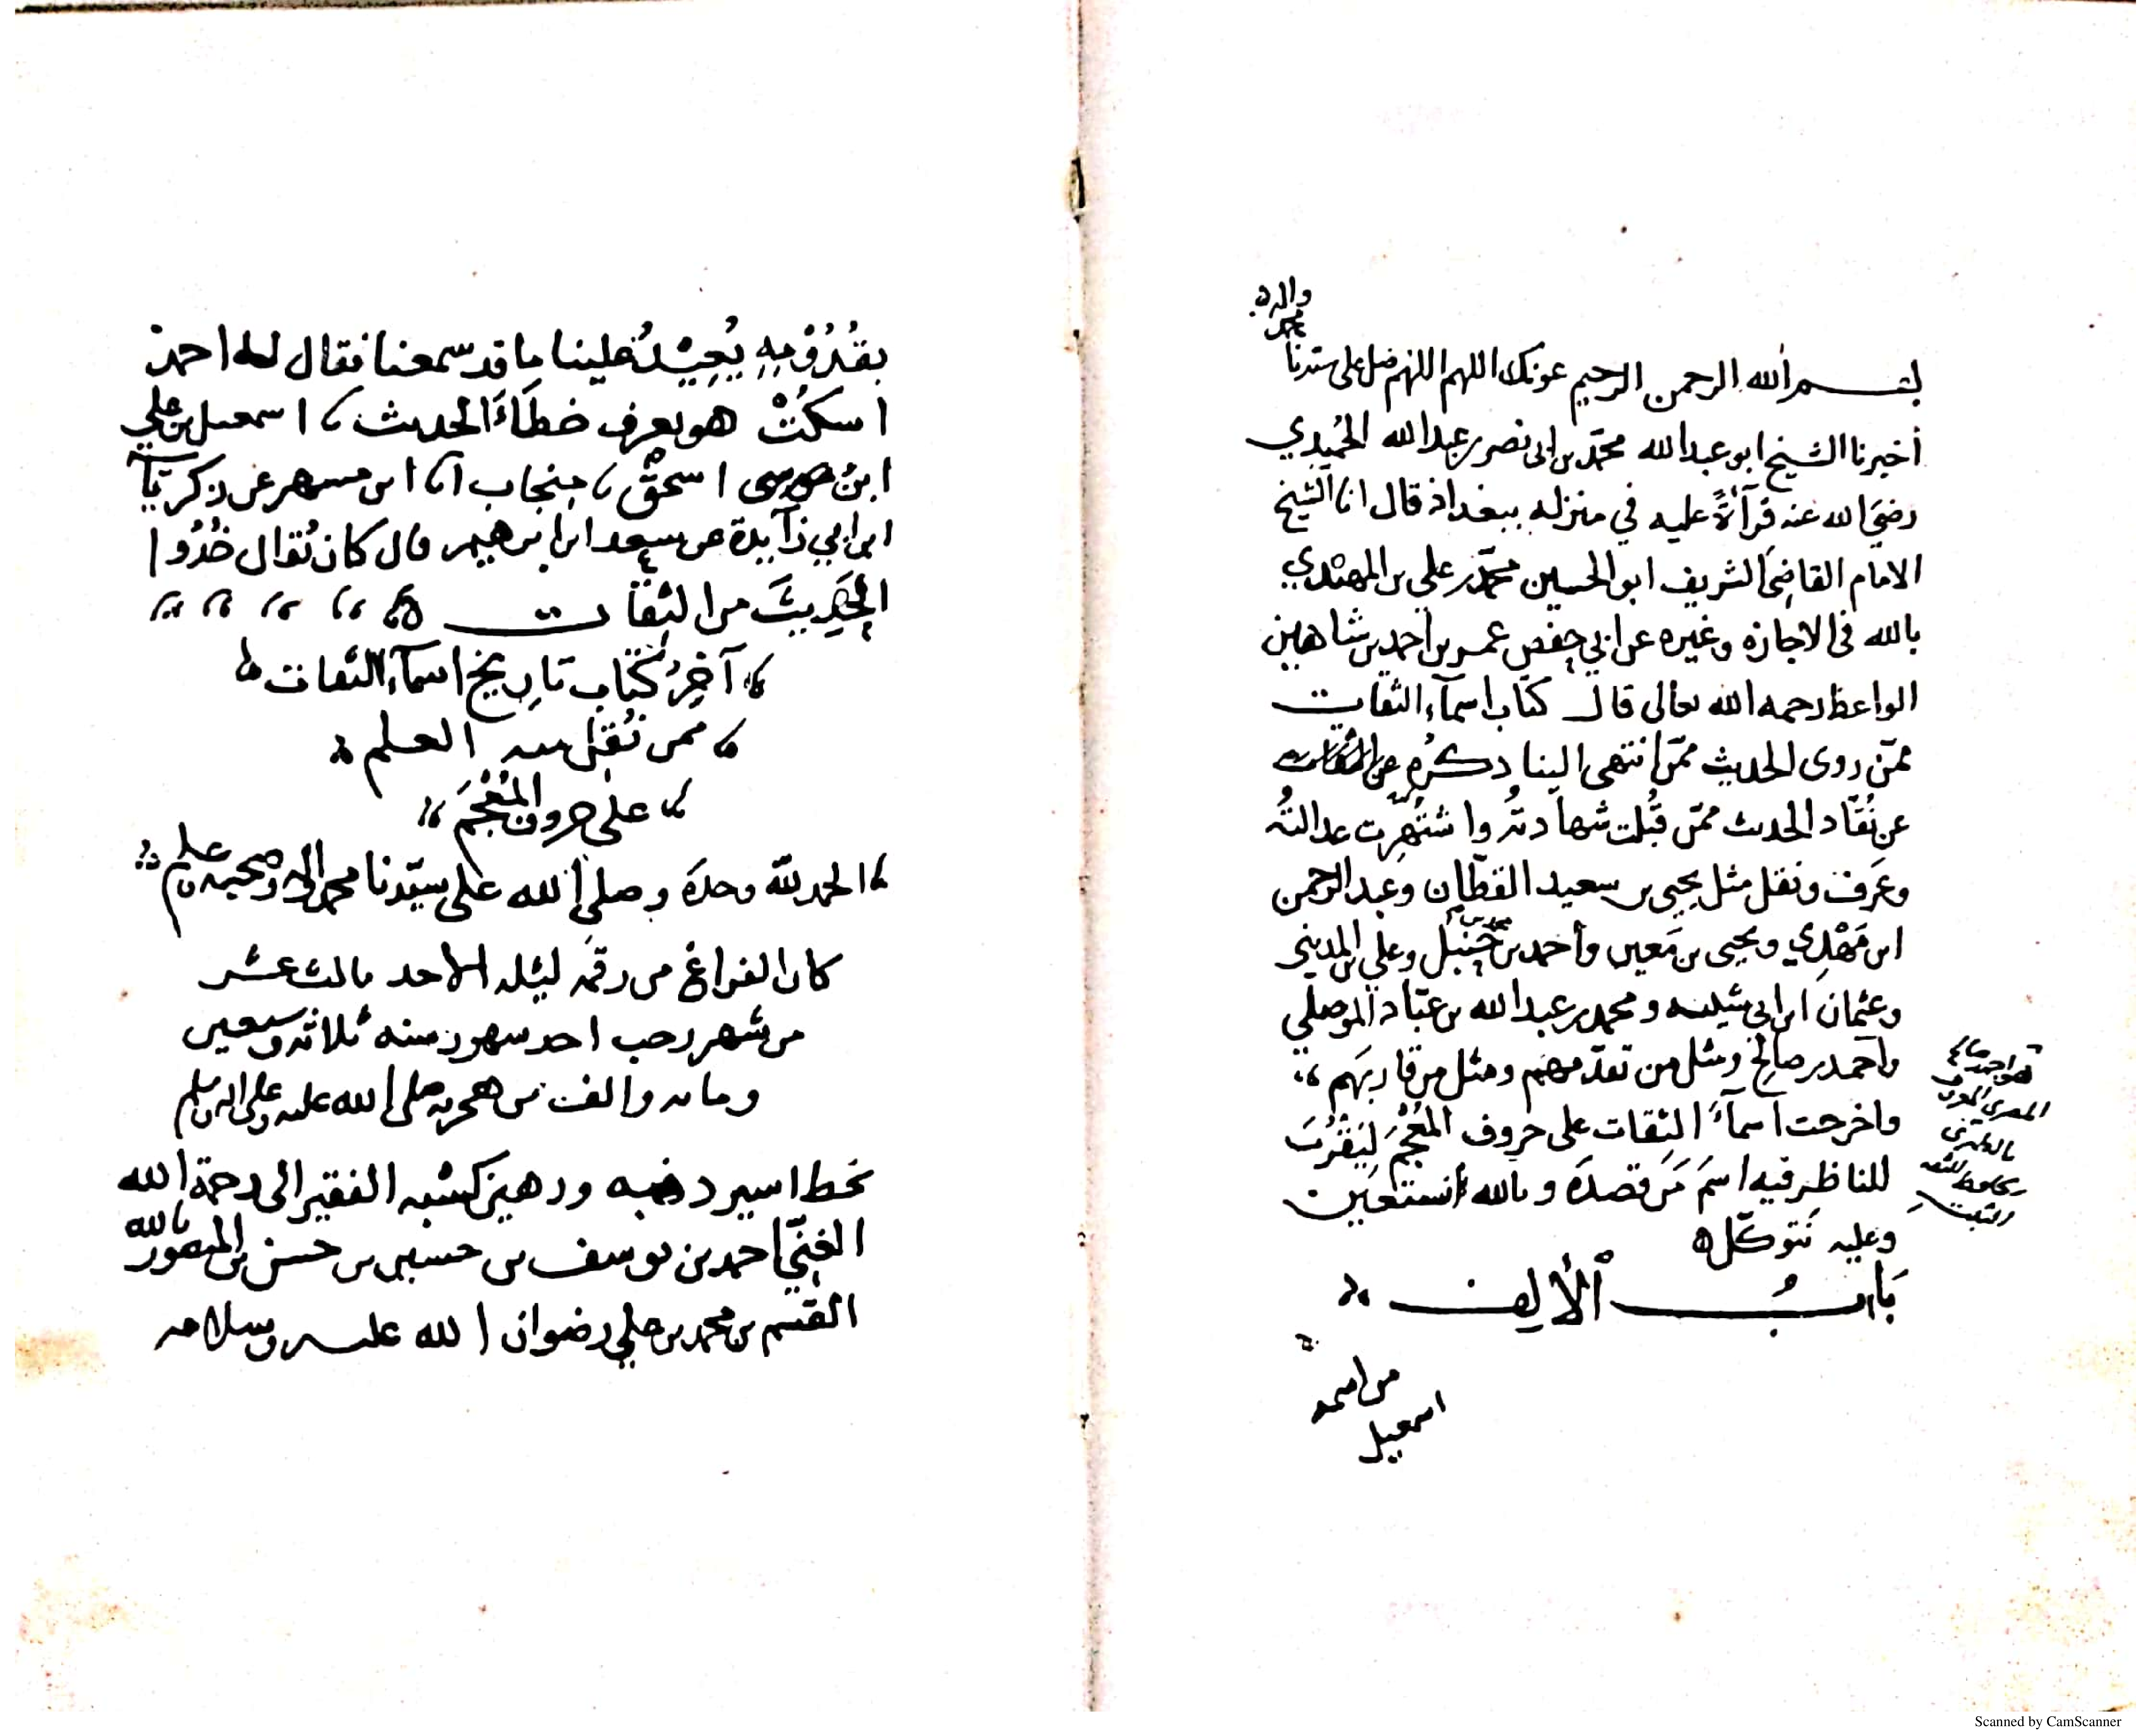 بسم الله الرحمن الرحيم عونك اللهم اللهم صل على سيدنا
محمد
واله
أخبرنا الشيخ ابو عبد الله محمد بن ابى نصر بن عبد الله الحُميدي
رضي الله عنه قرآءةً عليه في منزله ببغداذ قال انا الشيخ
الامام القاضي الشريف ابو الحسين محمد بن علي بن المهتدي
بالله فى الاجازه وغيره عن ابي حفص عمر بن احمد بن شاهين
الواعظ رحمه الله تعالى قال كتاب اسمآء الثقات
ممّن روى الحديث ممّن انتهى الينا ذكره
عن نُقّاد الحديث ممّن قُبلت شهادتُه واشتهرت عدالتُه
وعَرف ونقل مثل يحيى بن سعيد القطّان وعبد الرحمن
ابن مَهْدِي ويحيى بن مَعين وأحمد بن محمد بن حَنبل وعلي بن المديني
وعثمان ابن ابى شيبه ومحمد بن عبد الله بن عمّار الموصلي
واحمد بن صالح ومثل من تقدّمهم ومثل من قاربهم
واخرجت اسمآءَ الثقات على حروف المُعْجَم ليَقْرُبَ
للناظر فيه اسمَ مَن قصدَه وبالله أستعين
وعليه نتوكّل ه
بَابُ الْأَلِف
من اسمه
اسمعيل
هو احمد بن صالح
المصري المعروف
بالطبري
الحافظ الثقه
الثبت
بقُدُومِهِ يُعِيْدُ علينا ما قد سمعنا فقال له احمد
اسكُتْ هو يعرف خطآءَ الحديث اسمعيل بن علي
ابنُ موسى اسحق منجاب انا ابن مسهر عن زكريّآ
ابن ابي زآيدة عن سعد ابن ابرهيم قال كان يُقال خُذُوا
الحَدِيثَ من الثِقات
آخِرُ كتاب تاريخ اسمآء الثقات
ممن نُقِل عنه العلم
على حروف المُعْجَم
الحمد لله وحدَه وصلى الله على سيّدنا محمد واله وصحبه وسلم
كان الفراغ من رقمه ليله الاحد ثالث عشر
من شهر رجب احد شهور سنه ثلاثه وسبعين
ومايه والف من هجرته صلى الله عليه وعلى اله وسلم
بخط اسير ذنبه ورهين كسْبِه الفقير الى رحمة الله
الغنيّ احمد بن يوسف بن حسين بن حسن بن المنصور بالله
القسم بن محمد بن علي رضوان الله عليه وسلامه
Scanned by CamScanner